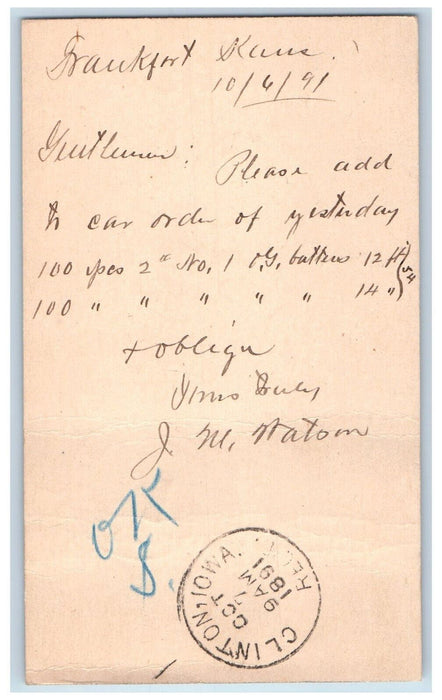 Frankfort Kans.
10/6/91
Gentlemen: Please add
to car order of yesterday
100 pcs 2" No. 1 O.G. battens 12 ft
100 " " " " " 14 " 54
& oblige
Yours Truly
J. M. Watson
OK
S.
CLINTON, IOWA. REC'D.
OCT
7
9 AM
1891